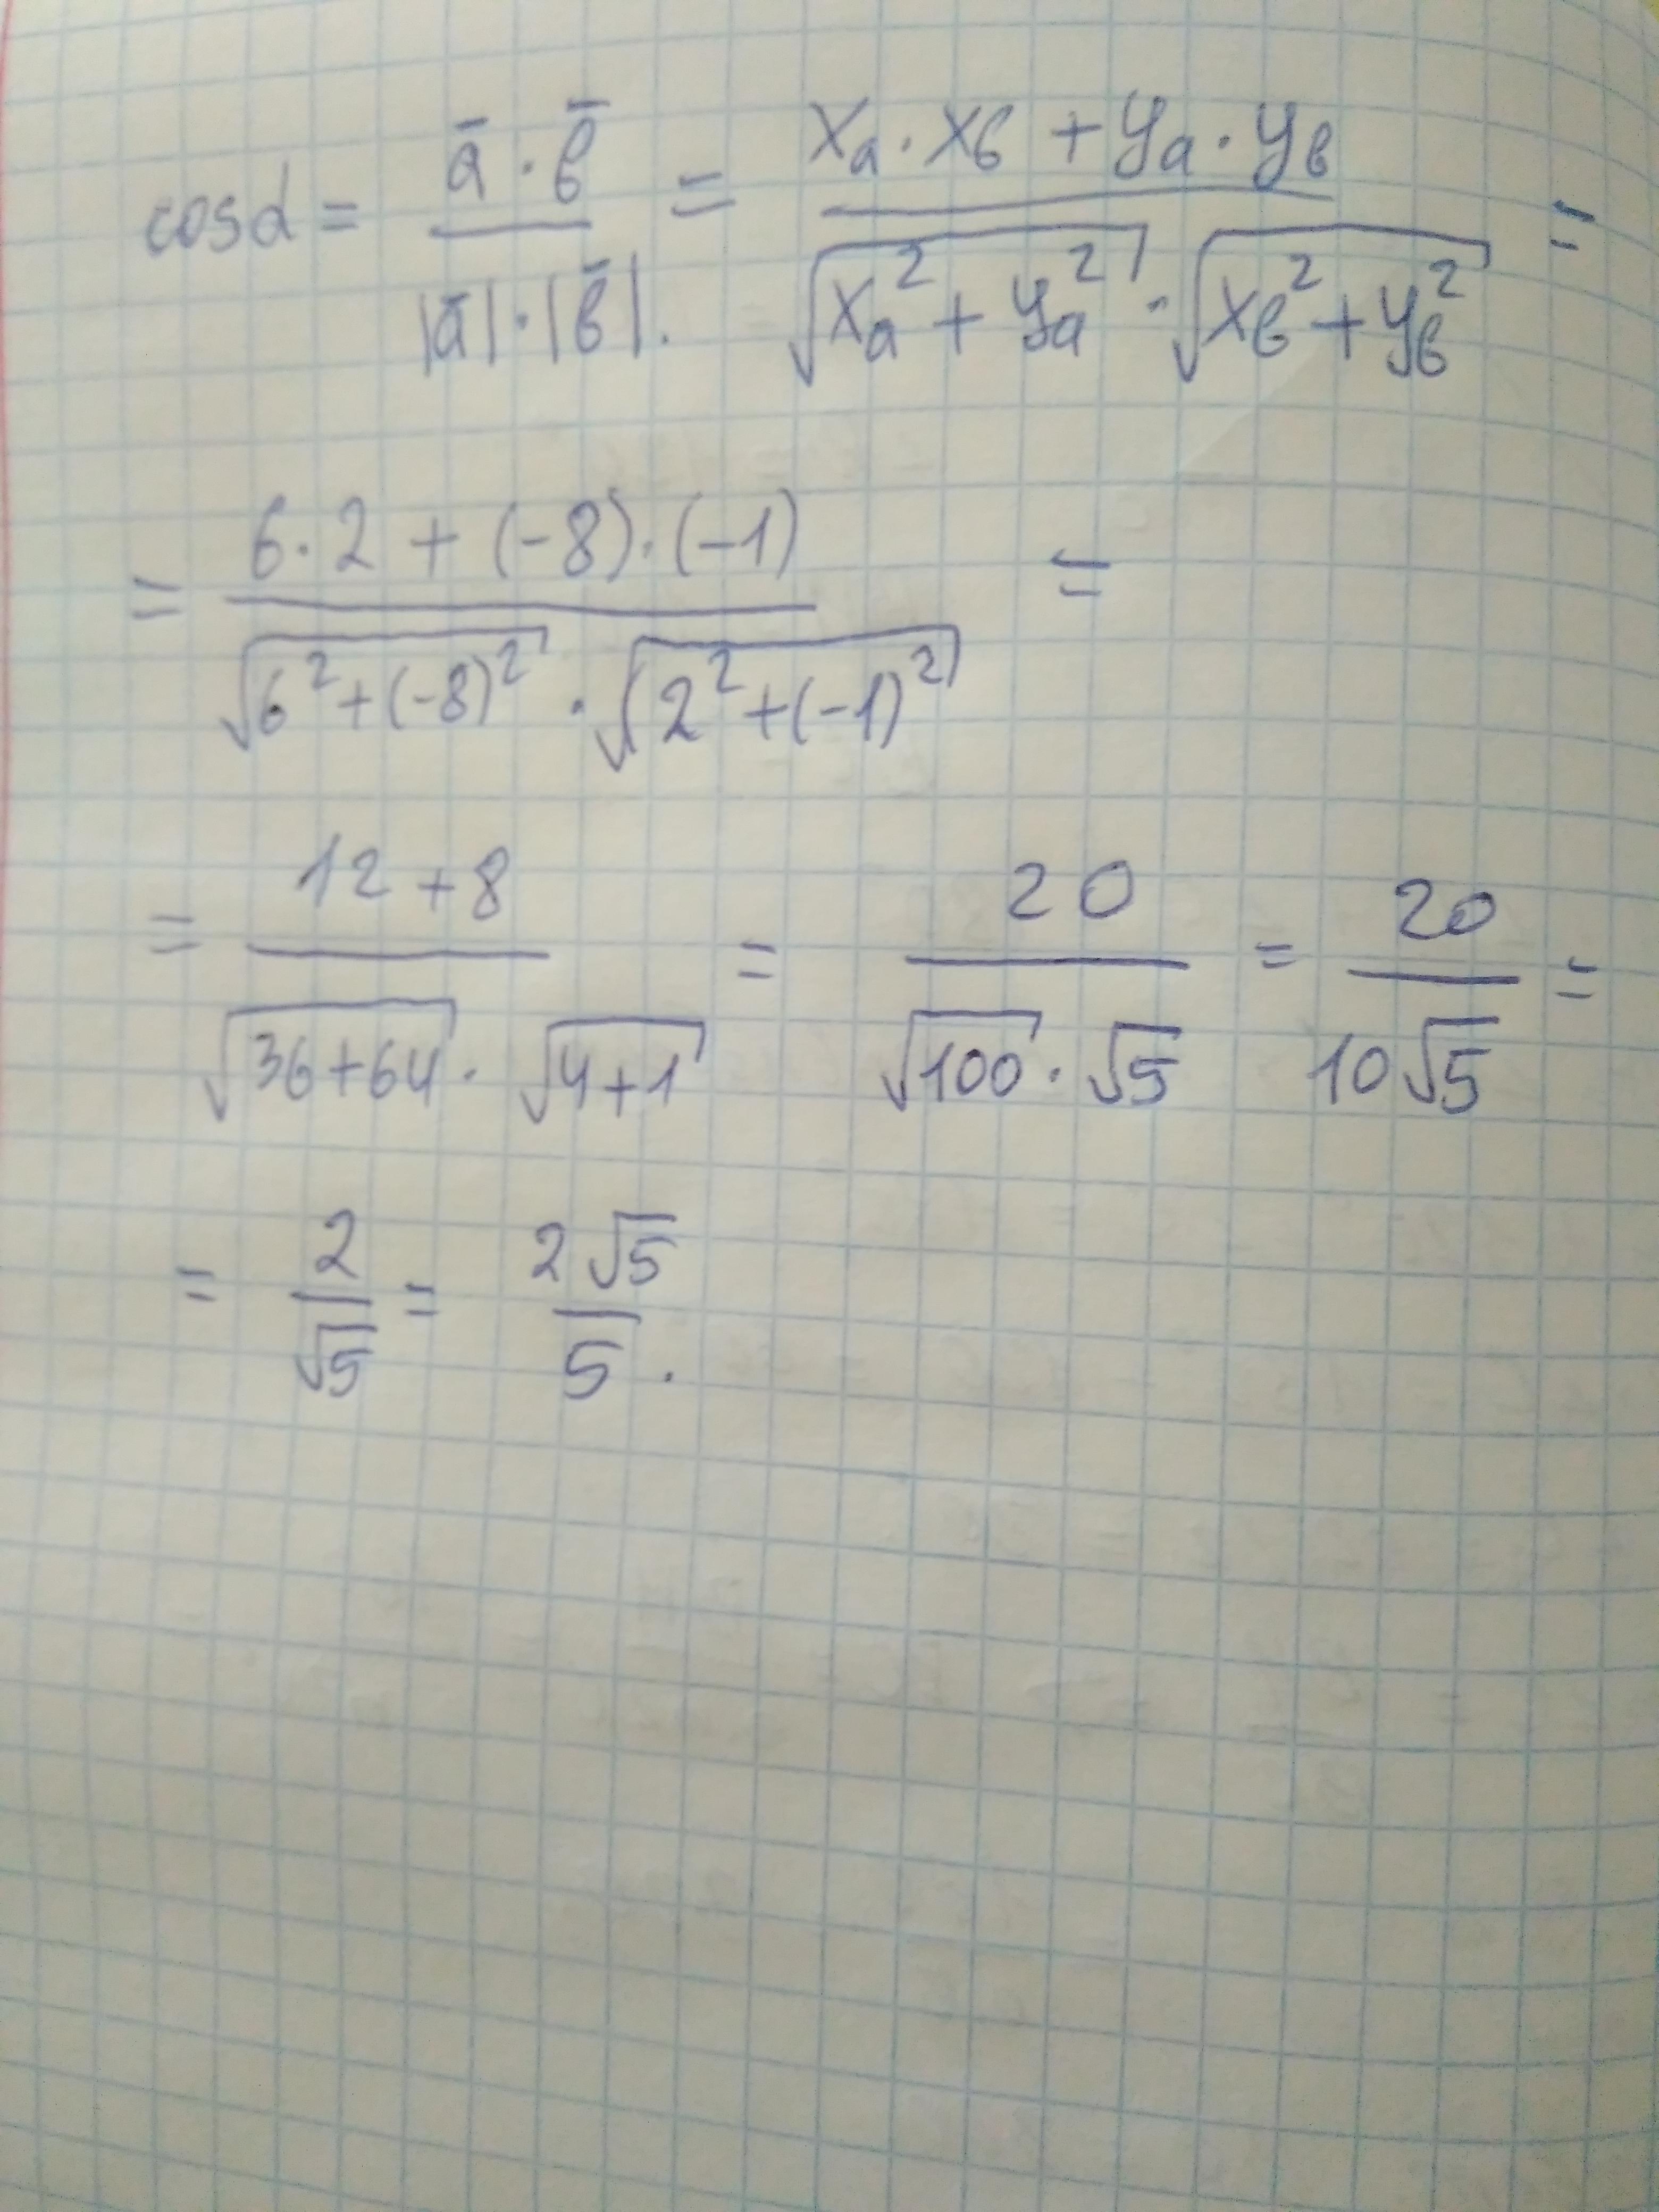 cosα = (ā · b̄) / (|ā| · |b̄|). = (xₐ · xв + yₐ · yв) / (√(xₐ² + yₐ²) · √(xв² + yв²)) =
= (6 · 2 + (-8) · (-1)) / (√(6² + (-8)²) · √(2² + (-1)²)) =
= (12 + 8) / (√(36 + 64) · √(4 + 1)) = 20 / (√100 · √5) = 20 / (10√5) =
= 2 / √5 = 2√5 / 5 .